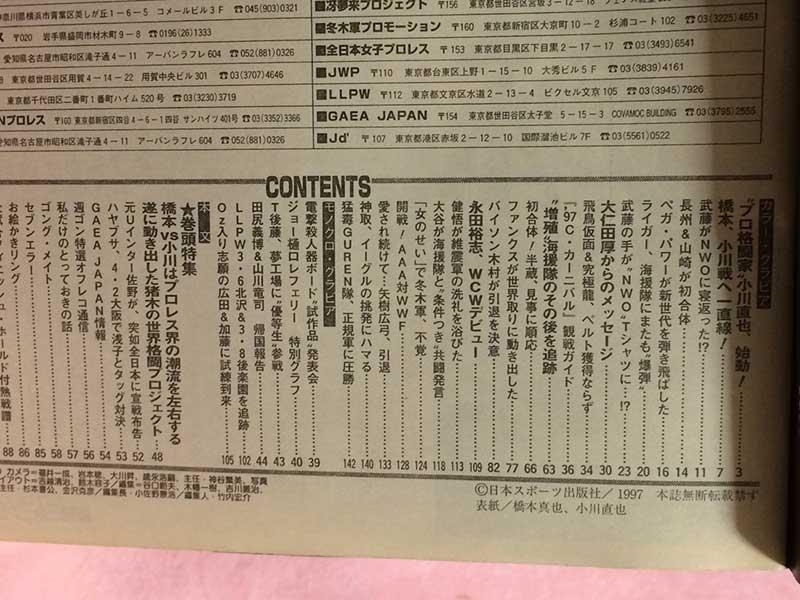 奈川県横浜市青葉区美しが丘1-6-5 コメールビル3F ☎045(903)0321
ス 〒020 岩手県盛岡市材木町9-8 ☎0196(26)1333
愛知県名古屋市昭和区滝子町4-11 アーバンラフレ604 ☎052(881)0326
東京都世田谷区用賀4-14-22 用賀中央ビル301 ☎03(3707)4646
東京都千代田区二番町1番町ハイム520号 ☎03(3230)3719
Nプロレス 〒160 東京都新宿区四谷4-6-1四谷サンハイツ401号 ☎03(3352)3366
愛知県名古屋市昭和区滝子町4-11 アーバンラフレ604 ☎052(881)0326
■冴夢来プロジェクト
■冬木軍プロモーション 〒169 東京都新宿区大京町10-2 杉浦コート102 ☎03(3225)4651
■全日本女子プロレス 〒153 東京都目黒区下目黒2-17-17 ☎03(3493)6541
■JWP 〒110 東京都台東区上野1-15-10 大秀ビル5F ☎03(3839)4161
■LLPW 〒112 東京都文京区水道2-13-4 ピクセル文京105 ☎03(3945)7926
■GAEA JAPAN 〒154 東京都世田谷区太子堂5-15-3 COVAMOC BUILDING ☎03(3795)2555
■Jd' 〒107 東京都港区赤坂2-12-10 国際溜池ビル7F ☎03(5561)0522
CONTENTS
カラー・グラビア
“プロ格闘家”小川直也、始動!……3
橋本、小川戦へ一直線!……7
武藤がNWOに寝返った!?……11
長州&山崎が初合体……14
ベガ・パワーが新世代を弾き飛ばした……16
ライガー、海援隊にまたも“爆弾”……20
武藤の手が“NWO”Tシャツに…!?……23
大仁田厚からのメッセージ……30
飛鳥仮面&究極龍、ベルト獲得ならず……34
『'97C・カーニバル』観戦ガイド……36
“増殖”海援隊のその後を追跡……63
初合体!半蔵、見事に順応……66
ファンクスが世界取りに動き出した……77
バイソン木村が引退を決意……82
永田裕志、WCWデビュー……109
健悟が維震軍の洗礼を浴びた……113
大谷が海援隊と“条件つき”共闘発言……118
「女のせい」で冬木軍、不覚……124
開戦!AAA対WWF……128
愛され続けて…矢樹広弓、引退……133
神取、イーグルの挑発にハマる……140
猛毒GUREN隊、正規軍に圧勝……142
モノクロ・グラビア
電撃殺人器ボード“試作品”発表会……39
ジョー樋口レフェリー 特別グラフ……40
T後藤、夢工場に“優等生”参戦……43
田尻義博&山川竜司 帰国報告……44
LLPW3・6北沢&3・8後楽園を追跡……102
Oz入り志願の広田&加藤に試練到来……105
本文
★巻頭特集
橋本vs小川はプロレス界の潮流を左右する
遂に動き出した猪木の世界格闘プロジェクト……48
元Uインター佐野が、突如全日本に宣戦布告……52
ハヤブサ、4・2大阪で浅子とタッグ対決……53
GAEA JAPAN情報……54
週ゴン特選オフレコ通信……56
私だけのとっておきの話……57
ゴング・メイト……58
セブンエラー……85
お絵かきリング……86
ホールド付熱戦譜……88
©日本スポーツ出版社/1997 本誌無断転載禁ず
表紙/橋本真也、小川直也